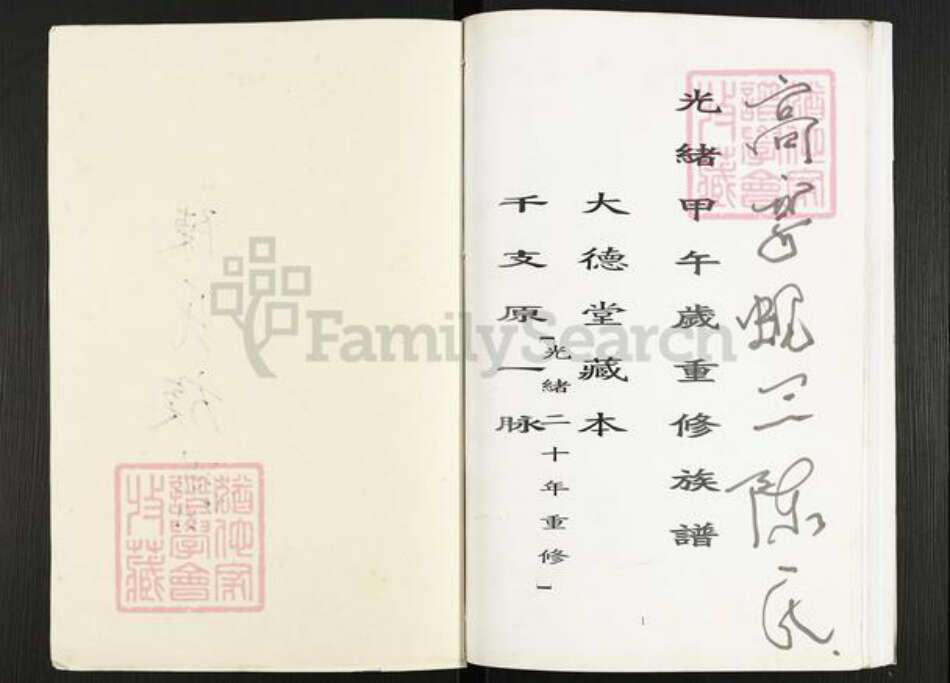 光緒甲午歲重修族譜
大德堂藏本
【光緒二十年重修】
千支原一脉
陳氏
猶他家譜學會收藏
猶他家譜學會收藏
FamilySearch